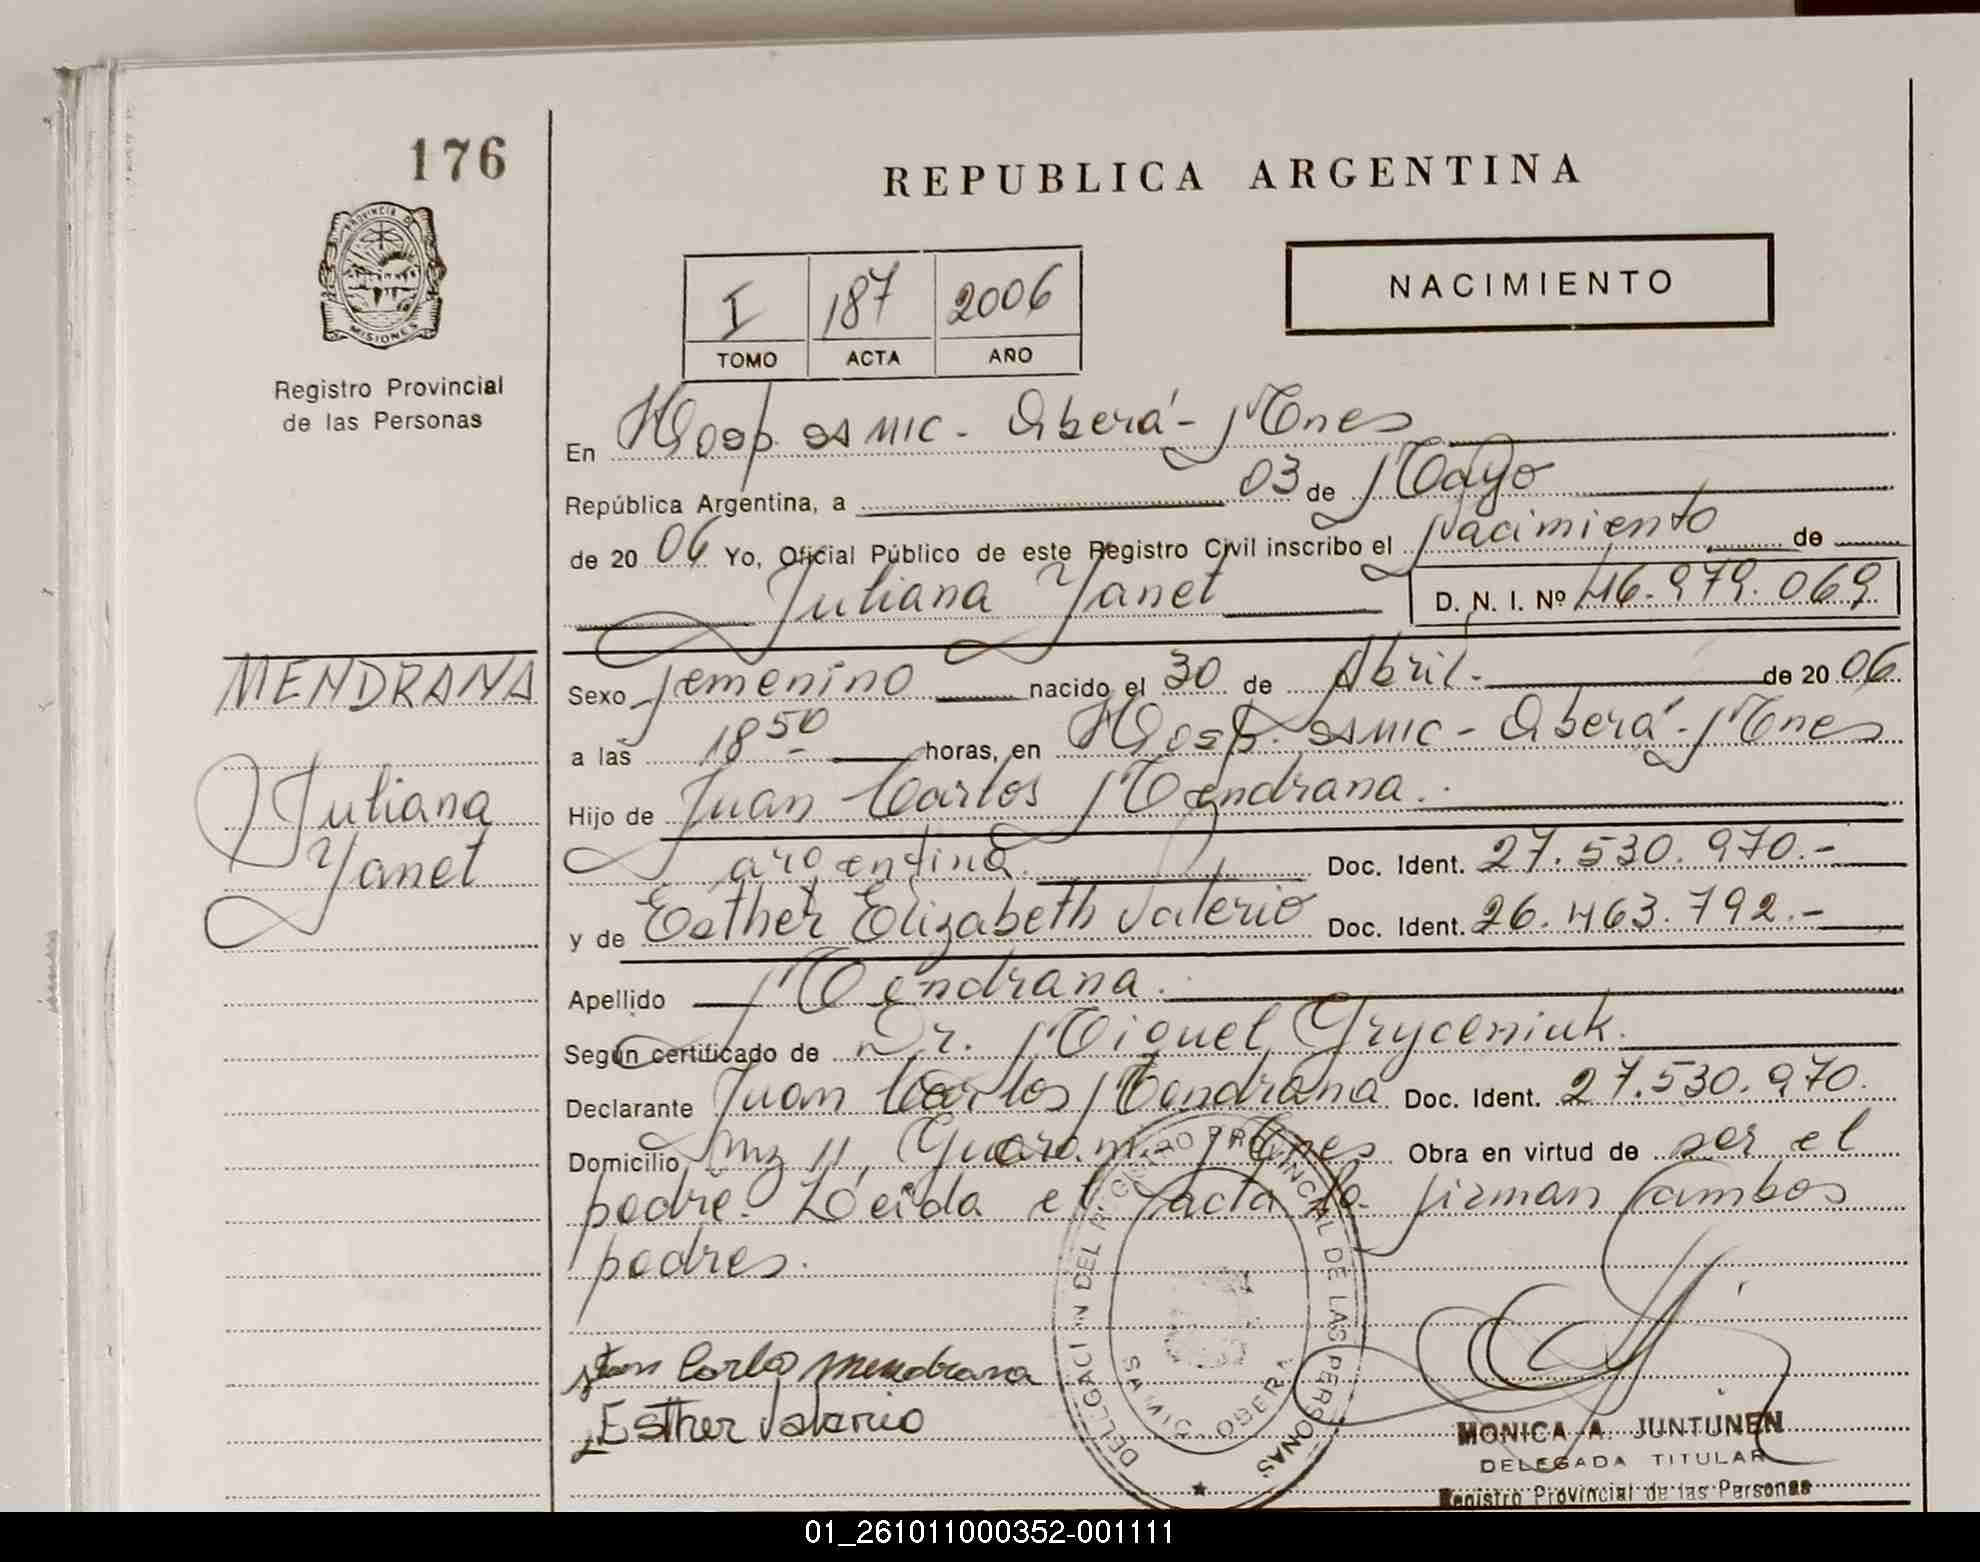 176
REPUBLICA ARGENTINA
PROVINCIA D
MISIONES
Registro Provincial
de las Personas
I 187 2006
TOMO ACTA AÑO
NACIMIENTO
En Hosp. SAMIC - Oberá - Mnes
República Argentina, a 03 de Mayo
de 20 06 Yo, Oficial Público de este Registro Civil inscribo el Nacimiento de
Juliana Yanet D. N. I. Nº 46.979.069
MENDRANA
Juliana
Yanet
Sexo femenino nacido el 30 de Abril. de 20 06
a las 18 50 horas, en Hosp. SAMIC - Oberá - Mnes
Hijo de Juan Carlos Mendrana.
argentina Doc. Ident. 27.530.970.-
y de Esther Elizabeth Valerio Doc. Ident. 26.463.792.-
Apellido Mendrana.
Según certificado de Dr. Miguel Gryceniuk.
Declarante Juan Carlos Mendrana Doc. Ident. 27.530.970.
Domicilio Mz 11, Guaraní, Mnes Obra en virtud de ser el
padre. Leida el acta la firman ambos
padres.
Juan Carlos Mendrana
Esther Valerio
DELEGACI N DEL REGISTRO PROVINCIAL DE LAS PERSONAS
OBERA
MONICA A. JUNTUNEN
DELEGADA TITULAR
Registro Provincial de las Personas
01_261011000352-001111